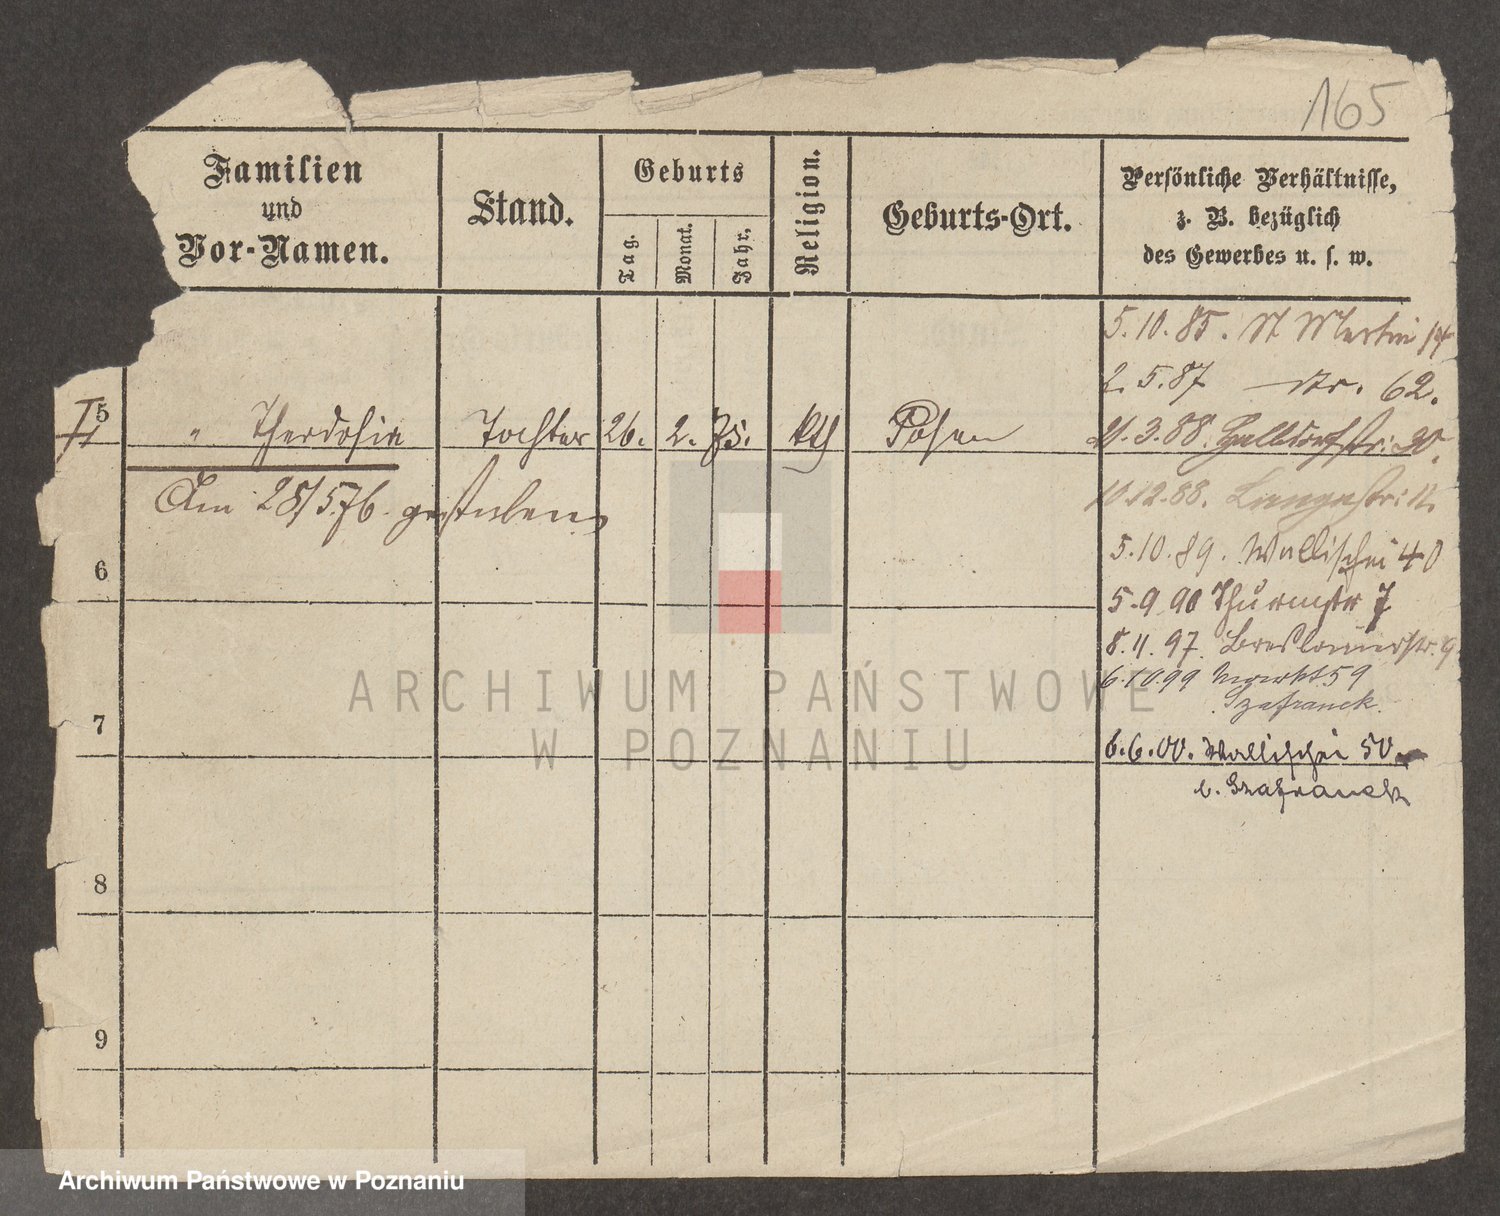 165
Familien
und
Vor-Namen.
Stand.
Geburts
Tag.
Monat.
Jahr.
Religion.
Geburts-Ort.
Persönliche Verhältnisse,
z. B. bezüglich
des Gewerbes u. s. w.
5.10.85. St Martin 14
2.5.87 Nr. 62.
5 " Theodosia Tochter 26. 2. 75. kth Posen
21.3.88. Halbdorfstr. 20.
Am 28/5.76. gestorben
10.12.88. Langestr. 12.
5.10.89. Wallischei 40
6
5.9.90 Thurmstr 7
8.11.97. Breslauerstr. 9.
6.10.99 Markt 59
Szafranek.
ARCHIWUM PAŃSTWOWE
W POZNANIU
7
6.6.00. Wallischei 50
b. Szafranek
8
9
Archiwum Państwowe w Poznaniu